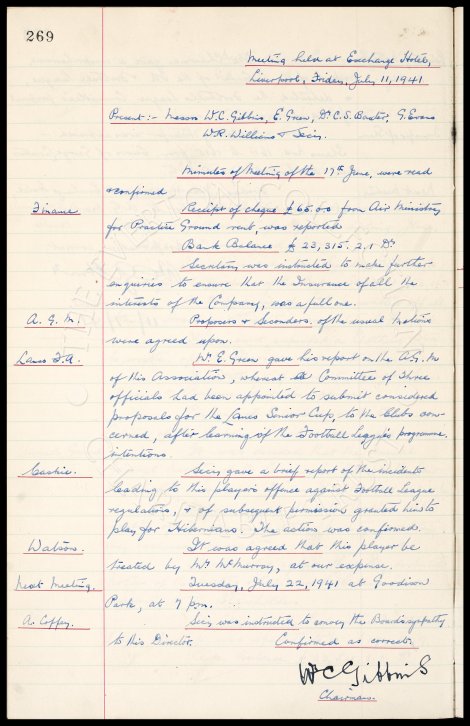 269
Meeting held at Exchange Hotel,
Liverpool, Friday, July 11, 1941
Present:- Messrs W.C. Gibbins, E. Green, Dr C.S. Baxter, G. Evans
W.R. Williams & Secy.
Minutes of Meeting of the 17th June, were read
& confirmed
Finance
Receipt of cheque £65.0.0 from Air Ministry
for Practice Ground rent, was reported
Bank Balance £23,315.2.1 Dr
Secretary was instructed to make further
enquiries to ensure that the Insurance of all the
interests of the Company, was a full one.
A.G.M.
Proposers & Seconders, of the usual motions
were agreed upon.
Lancs F.A.
Mr E. Green gave his report on the A.G.M
of this Association, whereat a Committee of three
officials had been appointed to submit considered
proposals for the Lancs Senior Cup, to the Clubs con-
cerned, after learning of the Football League's programme
intentions.
Caskie.
Secy gave a brief report of the incidents
leading to this player's offence against Football League
regulations, & of subsequent permission granted him to
play for Hibernians. The action was confirmed.
Watson.
It was agreed that this player be
treated by Mr McMurray, at our expense.
Next Meeting.
Tuesday, July 22, 1941 at Goodison
Park, at 7 pm.
A. Coffey.
Secy was instructed to convey the Board's sympathy
to this Director.
Confirmed as correct.
W C Gibbins
Chairman.